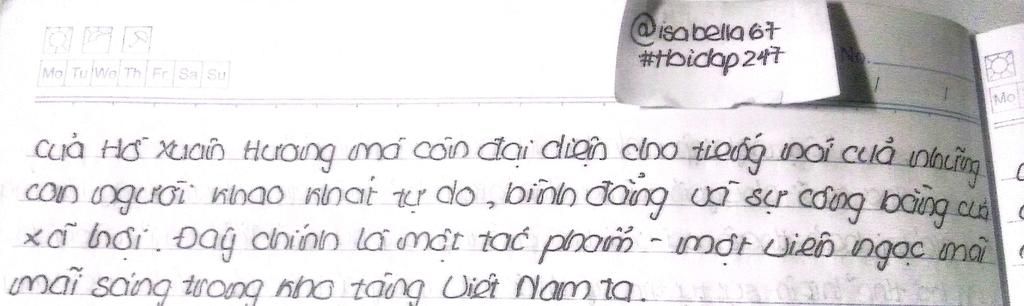 @isabella67
#Hoidap247
No.
Mo Tu We Th Fr Sa Su
Mo
của Hồ Xuân Hương mà còn đại diện cho tiếng nói của những
con người khao khát tự do, bình đẳng và sự công bằng của
xã hội. Đây chính là một tác phẩm - một viên ngọc mãi
mãi sáng trong kho tàng Việt Nam ta.